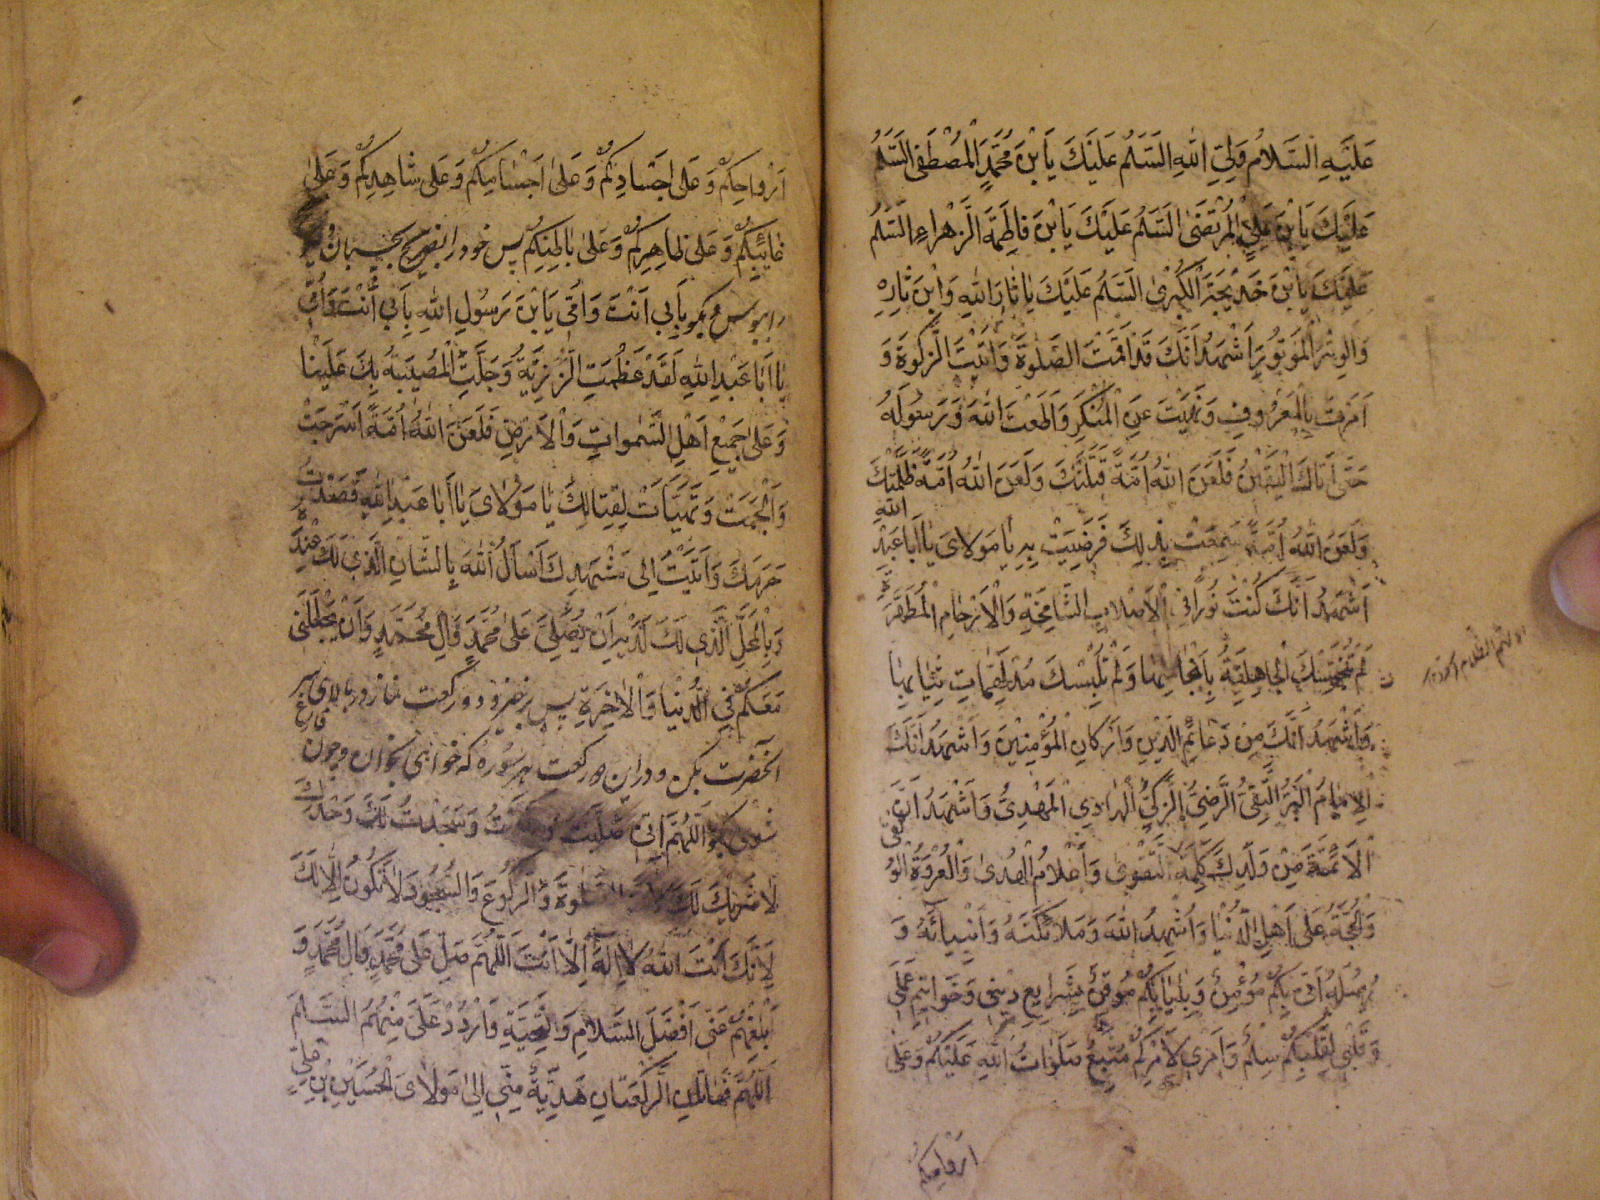 عَلَيْهِ السَّلَامُ وَلِيِّ اللهِ السَّلَمُ عَلَيْكَ يَا بْنَ مُحَمَّدٍ الْمُصْطَفَى السَّلَمُ
عَلَيْكَ يَا بْنَ عَلِيٍّ الْمُرْتَضَى السَّلَمُ عَلَيْكَ يَا بْنَ فَاطِمَةَ الزَّهْرَاءِ السَّلَمُ
عَلَيْكَ يَا بْنَ خَدِيْجَةَ الْكُبْرَى السَّلَمُ عَلَيْكَ يَا ثَارَ اللهِ وَابْنَ ثَارِهِ
وَالْوِتْرَ الْمَوْتُورَ اَشْهَدُ اَنَّكَ قَدْ اَقَمْتَ الصَّلٰوةَ وَ اٰتَيْتَ الزَّكٰوةَ وَ
اَمَرْتَ بِالْمَعْرُوفِ وَ نَهَيْتَ عَنِ الْمُنْكَرِ وَ اَطَعْتَ اللهَ وَ رَسُولَهُ
حَتّٰى اَتَاكَ الْيَقِيْنُ فَلَعَنَ اللهُ اُمَّةً قَتَلَتْكَ وَ لَعَنَ اللهُ اُمَّةً ظَلَمَتْكَ
وَ لَعَنَ اللهُ اُمَّةً سَمِعَتْ بِذٰلِكَ فَرَضِيَتْ بِهِ يَا مَوْلَايَ يَا اَبَا عَبْدِ اللهِ
اَشْهَدُ اَنَّكَ كُنْتَ نُورًا فِي الْاَصْلَابِ الشَّامِخَةِ وَ الْاَرْحَامِ الْمُطَهَّرَةِ
لَمْ تُنَجِّسْكَ الْجَاهِلِيَّةُ بِاَنْجَاسِهَا وَ لَمْ تُلْبِسْكَ مُدْلَهِمَّاتِ ثِيَابِهَا
وَ اَشْهَدُ اَنَّكَ مِنْ دَعَائِمِ الدِّيْنِ وَ اَرْكَانِ الْمُؤْمِنِيْنَ وَ اَشْهَدُ اَنَّكَ
الْاِمَامُ الْبَرُّ التَّقِيُّ الرَّضِيُّ الزَّكِيُّ الْهَادِي الْمَهْدِيُّ وَ اَشْهَدُ اَنَّ
الْاَئِمَّةَ مِنْ وَلَدِكَ كَلِمَةُ التَّقْوٰى وَ اَعْلَامُ الْهُدٰى وَ الْعُرْوَةُ الْوُثْقٰى
وَ الْحُجَّةُ عَلَى اَهْلِ الدُّنْيَا وَ اُشْهِدُ اللهَ وَ مَلَائِكَتَهُ وَ اَنْبِيَائَهُ وَ
رُسُلَهُ اَنِّي بِكُمْ مُؤْمِنٌ وَ بِاِيَابِكُمْ مُوقِنٌ بِشَرَايِعِ دِيْنِي وَ خَوَاتِيْمِ عَمَلِي
وَ قَلْبِي لِقَلْبِكُمْ سِلْمٌ وَ اَمْرِي لِاَمْرِكُمْ مُتَّبِعٌ صَلَوَاتُ اللهِ عَلَيْكُمْ وَ عَلٰى
ارواحكم
اَرْوَاحِكُمْ وَ عَلٰى اَجْسَادِكُمْ وَ عَلٰى اَجْسَامِكُمْ وَ عَلٰى شَاهِدِكُمْ وَ عَلٰى
غَائِبِكُمْ وَ عَلٰى ظَاهِرِكُمْ وَ عَلٰى بَاطِنِكُمْ پس خود را بضریح بچسبان
بوس و بگو بِاَبِي اَنْتَ وَ اُمِّي يَا بْنَ رَسُولِ اللهِ بِاَبِي اَنْتَ وَ اُمِّي
يَا اَبَا عَبْدِ اللهِ لَقَدْ عَظُمَتِ الرَّزِيَّةُ وَ جَلَّتِ الْمُصِيْبَةُ بِكَ عَلَيْنَا
وَ عَلٰى جَمِيْعِ اَهْلِ السَّمٰوَاتِ وَ الْاَرْضِ فَلَعَنَ اللهُ اُمَّةً اَسْرَجَتْ
وَ اَلْجَمَتْ وَ تَهَيَّأَتْ لِقِتَالِكَ يَا مَوْلَايَ يَا اَبَا عَبْدِ اللهِ قَصَدْتُ
حَرَمَكَ وَ اَتَيْتُ اِلٰى مَشْهَدِكَ اَسْأَلُ اللهَ بِالشَّاْنِ الَّذِي لَكَ عِنْدَهُ
وَ بِالْمَحَلِّ الَّذِي لَكَ لَدَيْهِ اَنْ يُصَلِّيَ عَلٰى مُحَمَّدٍ وَ اٰلِ مُحَمَّدٍ وَ اَنْ يَجْعَلَنِي
مَعَكُمْ فِي الدُّنْيَا وَ الْاٰخِرَةِ پس برخیز و دو رکعت نماز در بالای سر
آنحضرت بکن و در این دو رکعت هر سوره که خواهی بخوان و چون فارغ
شوی بگو اَللّٰهُمَّ اِنِّي صَلَّيْتُ وَ رَكَعْتُ وَ سَجَدْتُ لَكَ وَحْدَكَ
لَا شَرِيْكَ لَكَ لِاَنَّ الصَّلٰوةَ وَ الرُّكُوْعَ وَ السُّجُوْدَ لَا تَكُوْنُ اِلَّا لَكَ
لِاَنَّكَ اَنْتَ اللهُ لَا اِلٰهَ اِلَّا اَنْتَ اَللّٰهُمَّ صَلِّ عَلٰى مُحَمَّدٍ وَ اٰلِ مُحَمَّدٍ وَ
اَبْلِغْهُمْ عَنِّي اَفْضَلَ السَّلَامِ وَ التَّحِيَّةِ وَ ارْدُدْ عَلَيَّ مِنْهُمُ السَّلَامَ
اَللّٰهُمَّ وَهَاتَانِ الرَّكْعَتَانِ هَدِيَّةٌ مِنِّي اِلٰى مَوْلَايَ الْحُسَيْنِ بْنِ عَلِيٍّ